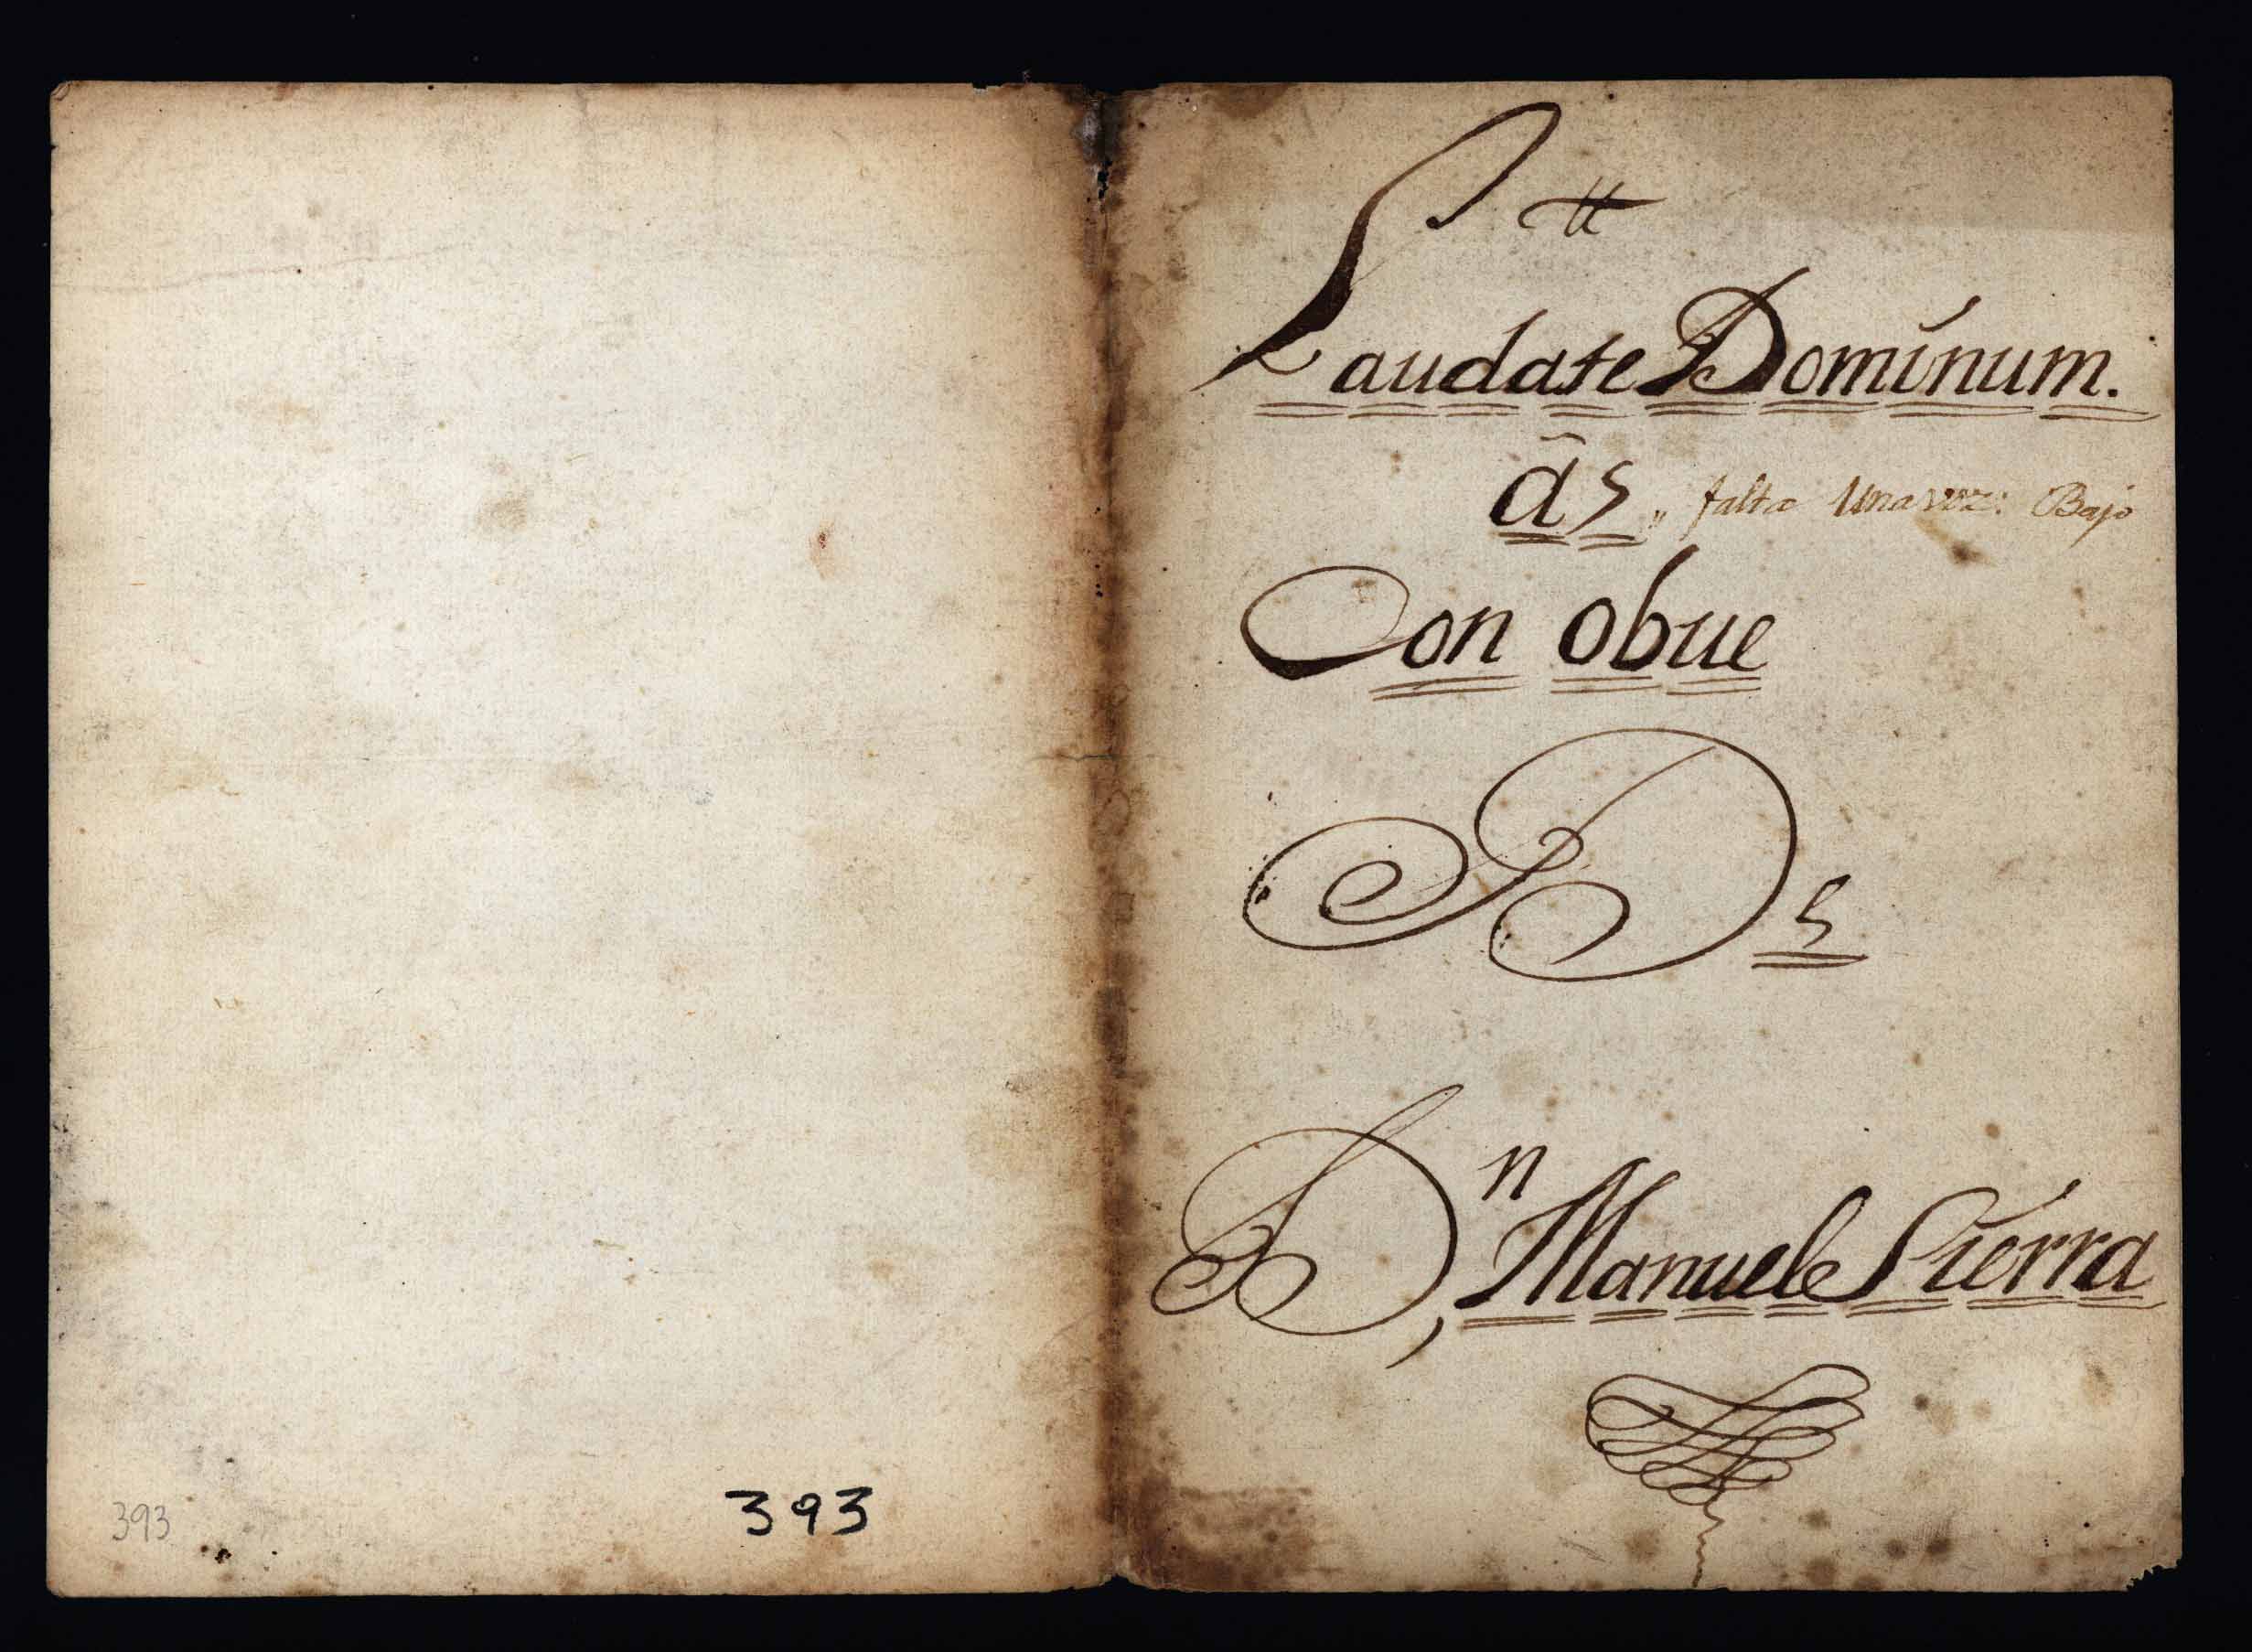 393
393
Laudate Dominum.
â 5,, falta Una voz: Bajo
Con obue
D 5
Dn, Manuel Sierra